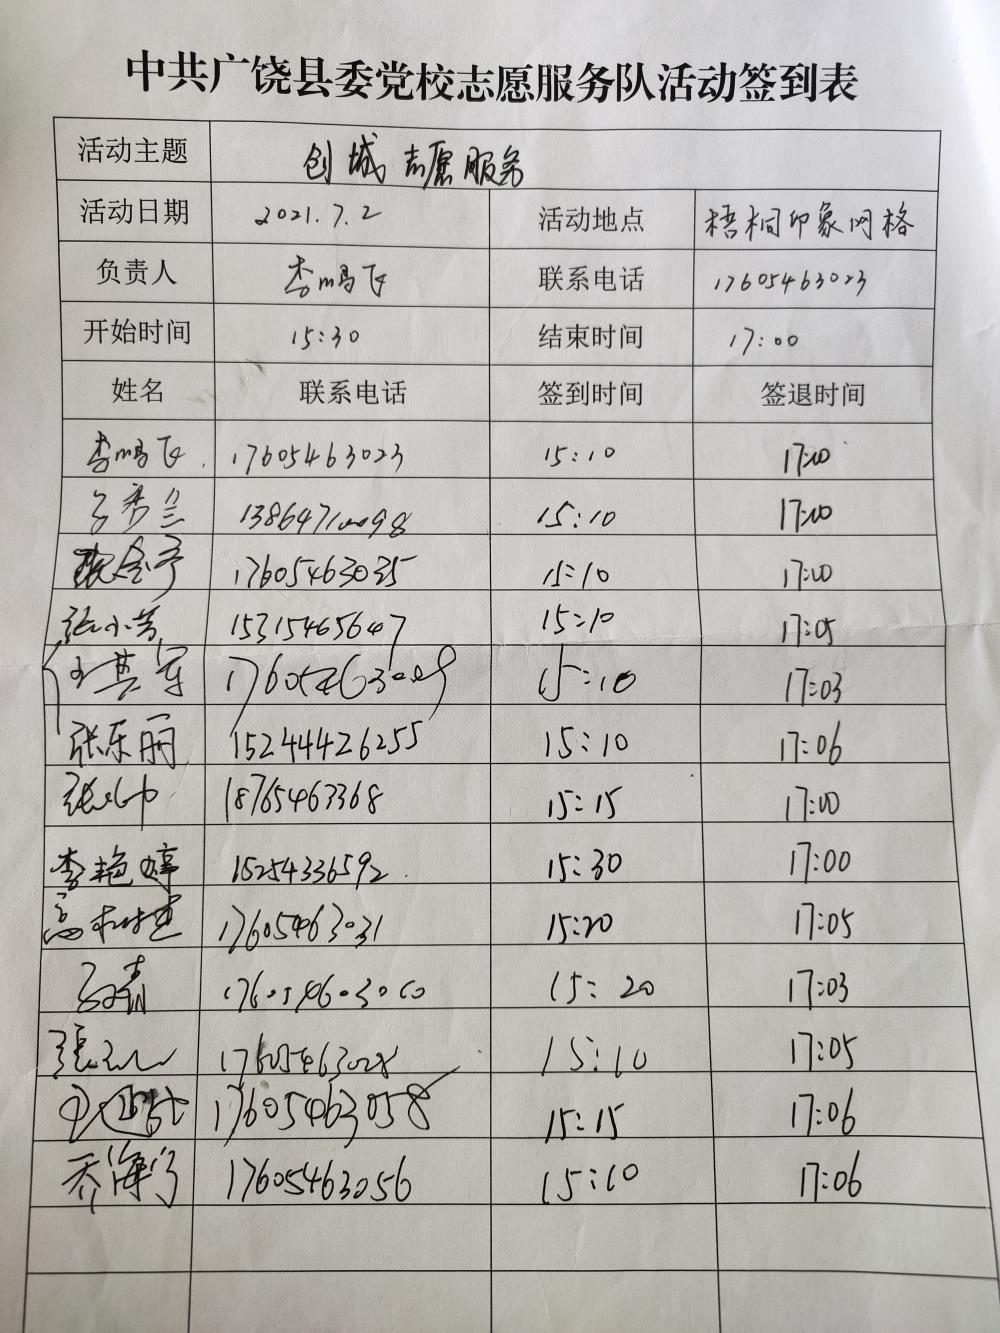 中共广饶县委党校志愿服务队活动签到表
活动主题 创城志愿服务
活动日期 2021.7.2 活动地点 梧桐印象网格
负责人 李鹏飞 联系电话 17605463023
开始时间 15:30 结束时间 17:00
姓名 联系电话 签到时间 签退时间
李鹏飞 17605463023 15:10 17:00
15:10 17:00
17605463035 15:10 17:00
张小芳 15315465647 15:10 17:05
15:10 17:03
张乐丽 15244426255 15:10 17:06
18765463368 15:15 17:00
李艳婷 15254336592 15:30 17:00
17605463031 15:20 17:05
15:20 17:03
17605463028 15:10 17:05
17605463058 15:15 17:06
乔海 17605463056 15:10 17:06